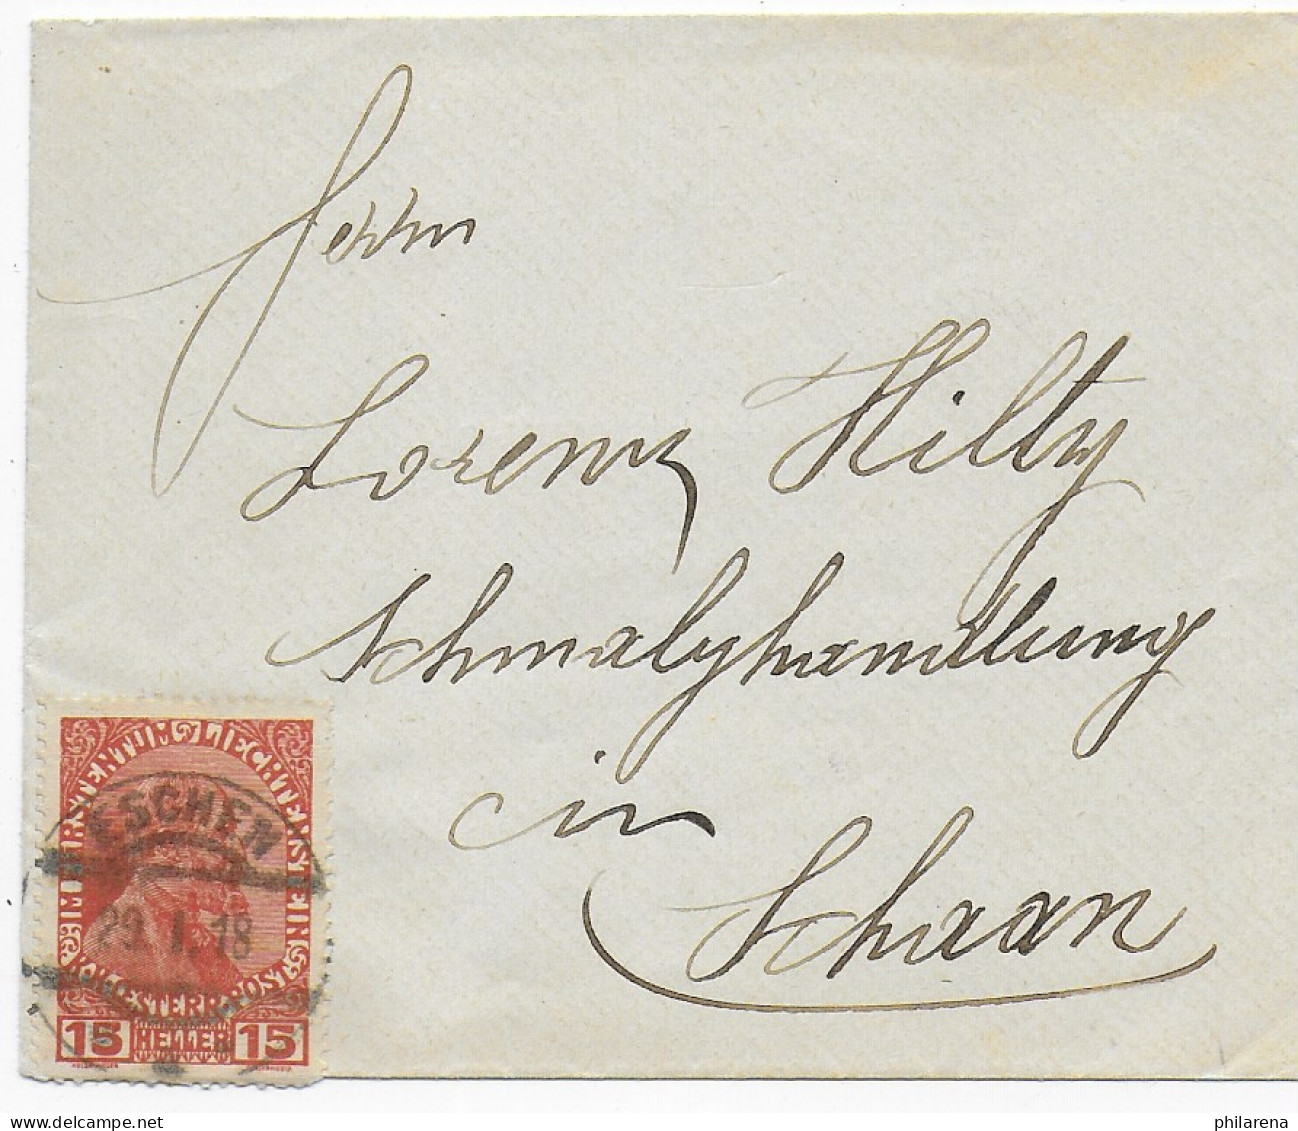 Herrn
Lorenz Hilty
Schmalzhandlung
in
Schaan
IM FÜRSTENTUM LIECHTENSTEIN
ESCHEN
29.I.18
K.K.OESTERR.POST
15 HELLER 15
philarena